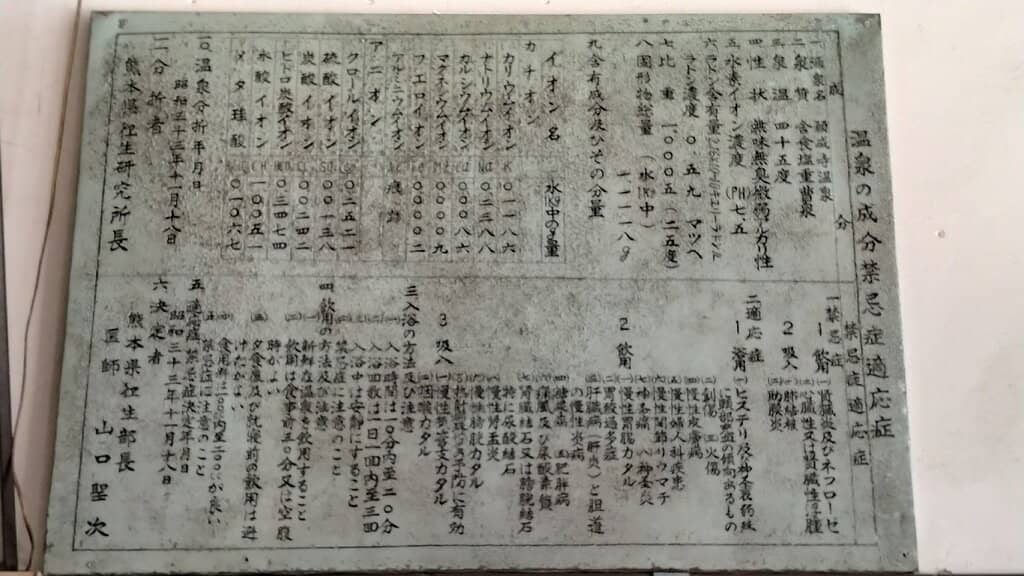 温泉の成分禁忌症適応症
成分
一温泉名 願成時温泉
二泉質 含食塩重曹泉
三泉温 四十五度
四性状 無味無臭微弱アルカリ性
五水素イオン濃度(PH)七五
六ラドン含有量
ラドン濃度 〇五九 マツヘ
七比重 一〇〇〇五(二五度)
八固形物総量(水1K中)
一一一二八g
九含有成分及びその分量
イオン名 水1K中のg量
カチオン
カリウムイオン K 〇一一八六
ナトリウムイオン Na 〇二三八八
カルシウムイオン Ca 〇〇〇八六
マグネシウムイオン Mg 〇〇〇〇九
フエロイオン Fe 〇〇〇〇二
アルミニウムイオン 痕跡
アニオン
クロールイオン 〇二五二一
硫酸イオン SO 〇〇一三八
炭酸イオン 〇〇二四二
ヒドロ炭酸イオン HCO 〇三七七四
水酸イオン OH 一〇〇五一
メタ珪酸 〇一〇六七
一〇温泉分析年月日
昭和三十三年十一月十八日
一一分析者
熊本県衛生研究所長
禁忌症適応症
一禁忌症
1 飲用 (一)腎臓炎及びネフローゼ
(二)心臓性又は腎臓性浮腫
2 吸入 (一)肺結核
(二)肋膜炎
二適応症
1 浴用 (一)ヒステリ及び神圣衰弱症
(二)創傷 (三)火傷
(四)慢性皮膚病
(五)慢性婦人科疾患
(六)慢性関節リウマチ
(七)神圣痛 (八)神圣炎
2 飲用 (一)慢性胃腸カタル
(二)胃酸過多症
(三)肝臓病(肝炎)と胆道
の慢性炎病
(四)糖尿病 (五)肥胖病
(六)痛風及び尿酸素質
(七)腎臓結石又は膀胱結石
特に尿酸結石
(八)慢性腎盂炎
(九)慢性膀胱カタル
3 吸入 (一)慢性気管支カタル
(二)咽喉カタル
三入浴の方法及び注意
入浴時間は一〇分内至二〇分
入浴回数は一日一回内至三回
入浴中は安静にすること
禁忌症に注意のこと
四飲用の方法及び注意
(一)新鮮な温泉を飲用すること
(二)飲用は食事前三〇分又は空腹
時がよい
(三)夕食後及び就寝前の飲用は避
けたがよい
(四)飲用料は一〇〇内至二〇〇が良い
(五)禁忌症に注意のこと
五適応症禁忌症決定年月日
昭和三十三年十一月十八日
六決定者
熊本県衛生部長
医師 山口聖次